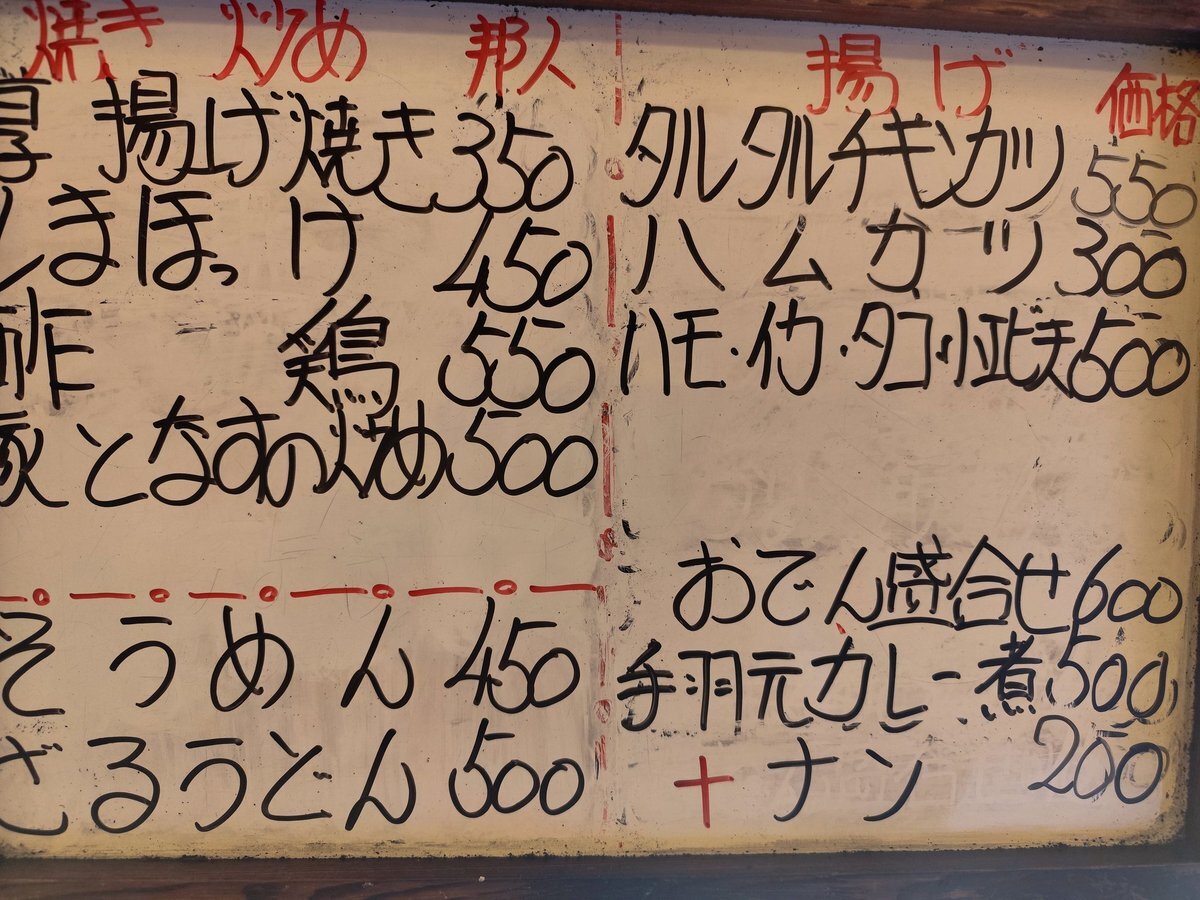 焼き 炒め 邦人
厚揚げ焼き 350
しまほっけ 450
酢鶏 550
豚となすの炒め 500
そうめん 450
ざるうどん 500
揚げ 価格
タルタルチキンカツ 550
ハムカツ 300
ハモ・イカ・タコ・小エビ天 600
おでん盛合せ 600
手羽元カレー煮 500
+ナン 200